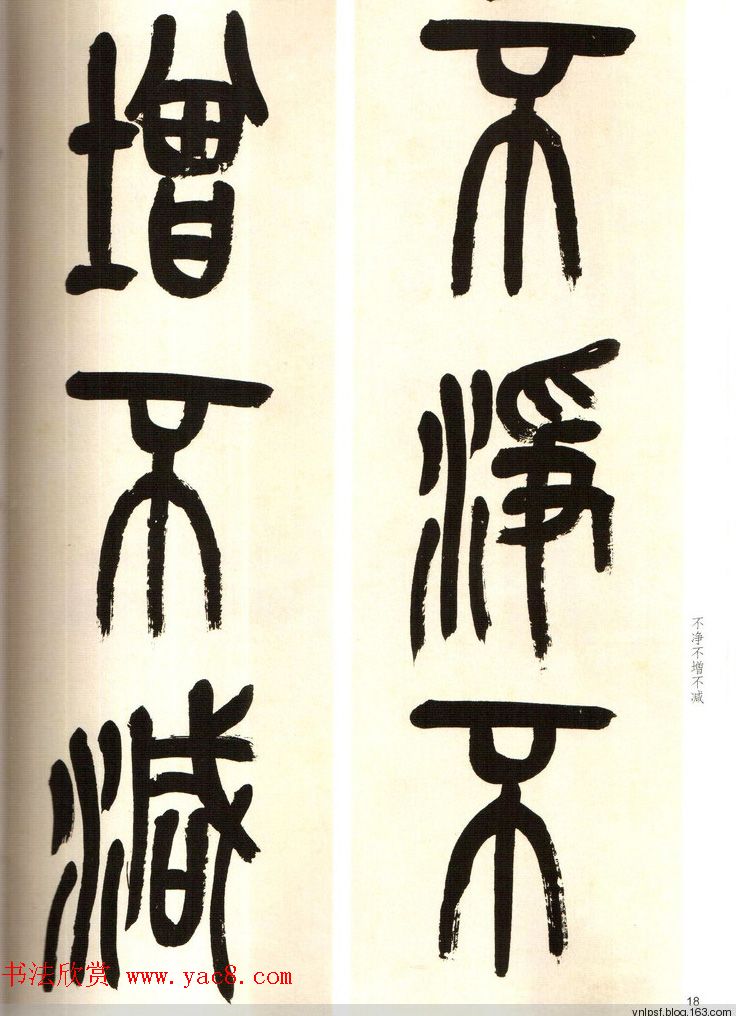 不淨不
增不減
不净不增不减
18
书法欣赏 www.yac8.com
vnlpsf.blog.163.com